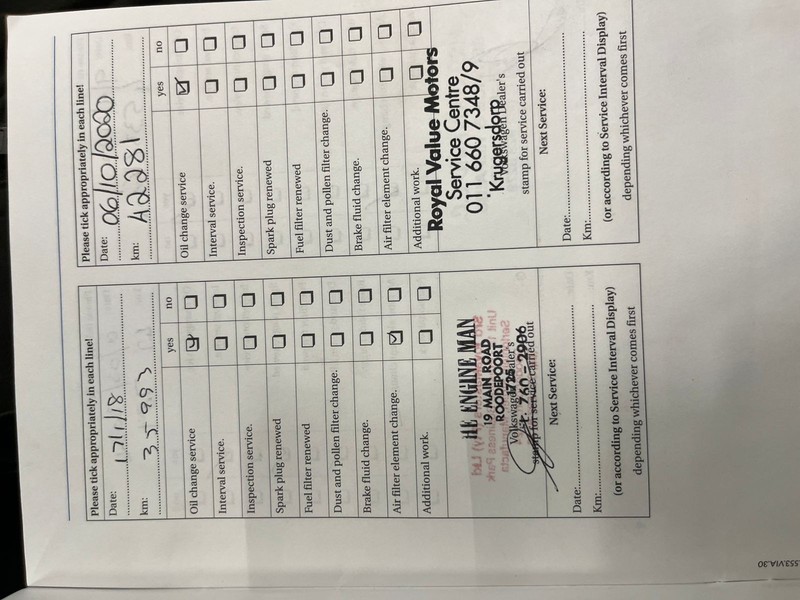 Please tick appropriately in each line!
Date: 17/1/18
km: 35 993
yes no
Oil change service
Interval service.
Inspection service.
Spark plug renewed
Fuel filter renewed
Dust and pollen filter change.
Brake fluid change.
Air filter element change.
Additional work.
THE ENGINE MAN
19 MAIN ROAD
ROODEPOORT
1725
Volkswagen Dealer's
760 - 2906
stamp for service carried out
Next Service:
Date:
Km:
(or according to Service Interval Display)
depending whichever comes first
Please tick appropriately in each line!
Date: 06/10/2020
km: A2281
yes no
Oil change service
Interval service.
Inspection service.
Spark plug renewed
Fuel filter renewed
Dust and pollen filter change.
Brake fluid change.
Air filter element change.
Additional work.
Royal Value Motors
Service Centre
011 660 7348/9
Krugersdorp
Volkswagen Dealer's
stamp for service carried out
Next Service:
Date:
Km:
(or according to Service Interval Display)
depending whichever comes first
.553.VIA.30